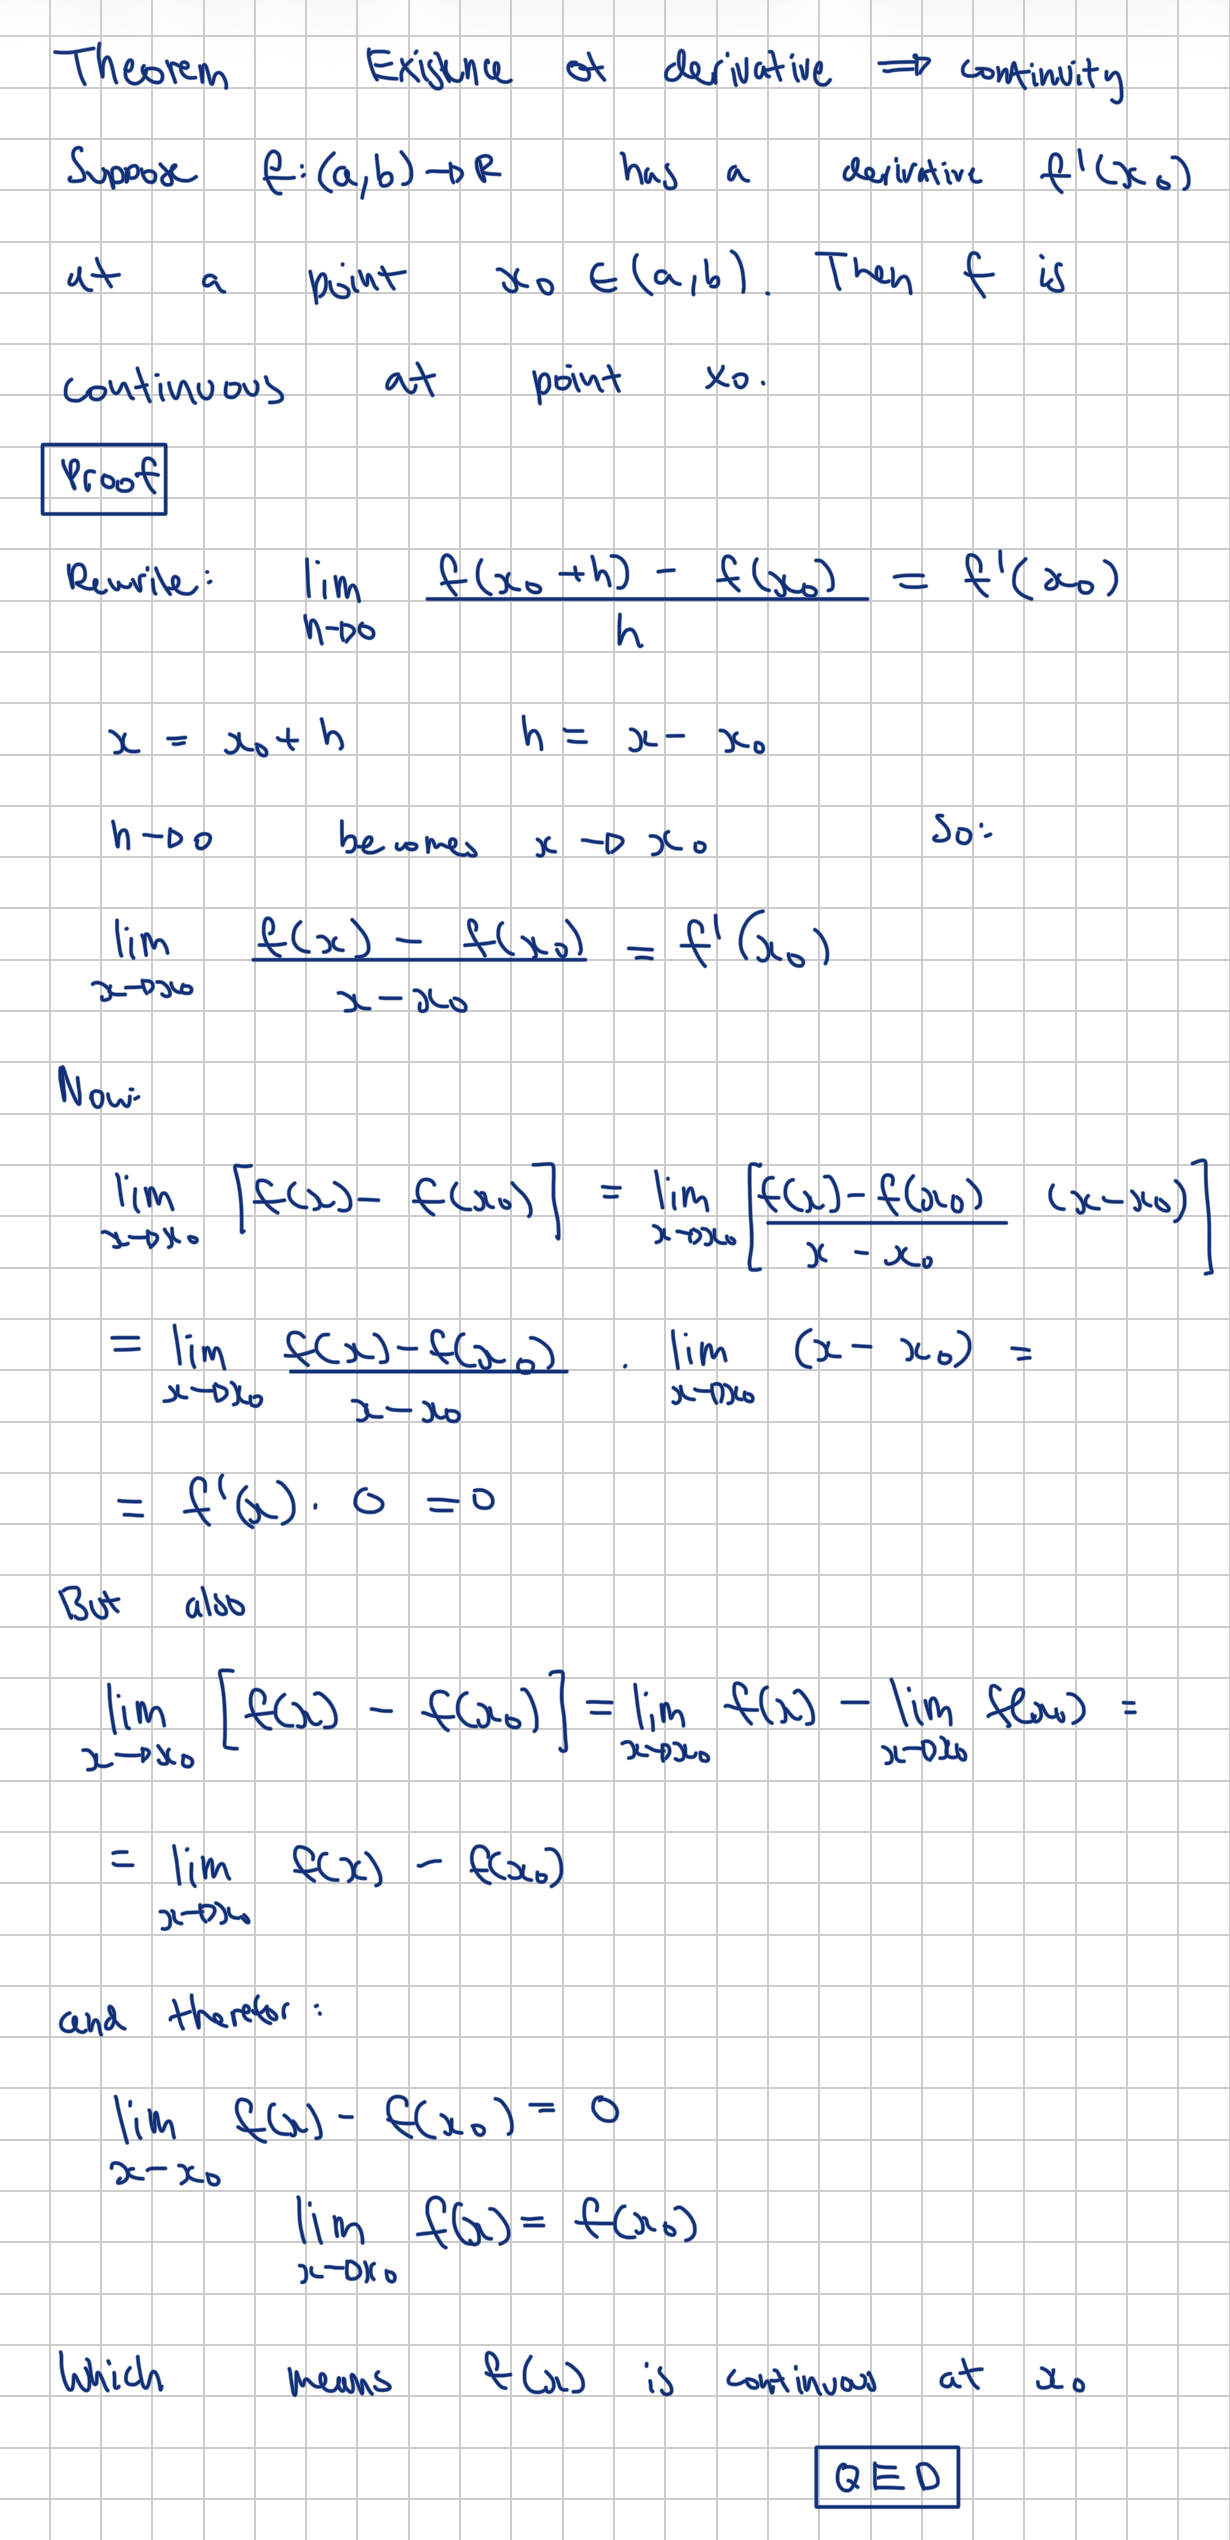 Theorem Existence of derivative ⇒ continuity
Suppose f:(a,b)→R has a derivative f'(x₀)
at a point x₀ ∈(a,b). Then f is
continuous at point x₀.
Proof
Rewrite: lim h→0 (f(x₀+h) - f(x₀))/h = f'(x₀)
x = x₀ + h h = x - x₀
h→0 becomes x→x₀ So:
lim x→x₀ (f(x) - f(x₀))/(x - x₀) = f'(x₀)
Now:
lim x→x₀ [f(x) - f(x₀)] = lim x→x₀ [(f(x) - f(x₀))/(x - x₀) (x - x₀)]
= lim x→x₀ (f(x) - f(x₀))/(x - x₀) · lim x→x₀ (x - x₀) =
= f'(x) · 0 = 0
But also
lim x→x₀ [f(x) - f(x₀)] = lim x→x₀ f(x) - lim x→x₀ f(x₀) =
= lim x→x₀ f(x) - f(x₀)
and therefor:
lim x-x₀ f(x) - f(x₀) = 0
lim x→x₀ f(x) = f(x₀)
Which means f(x) is continuous at x₀
QED